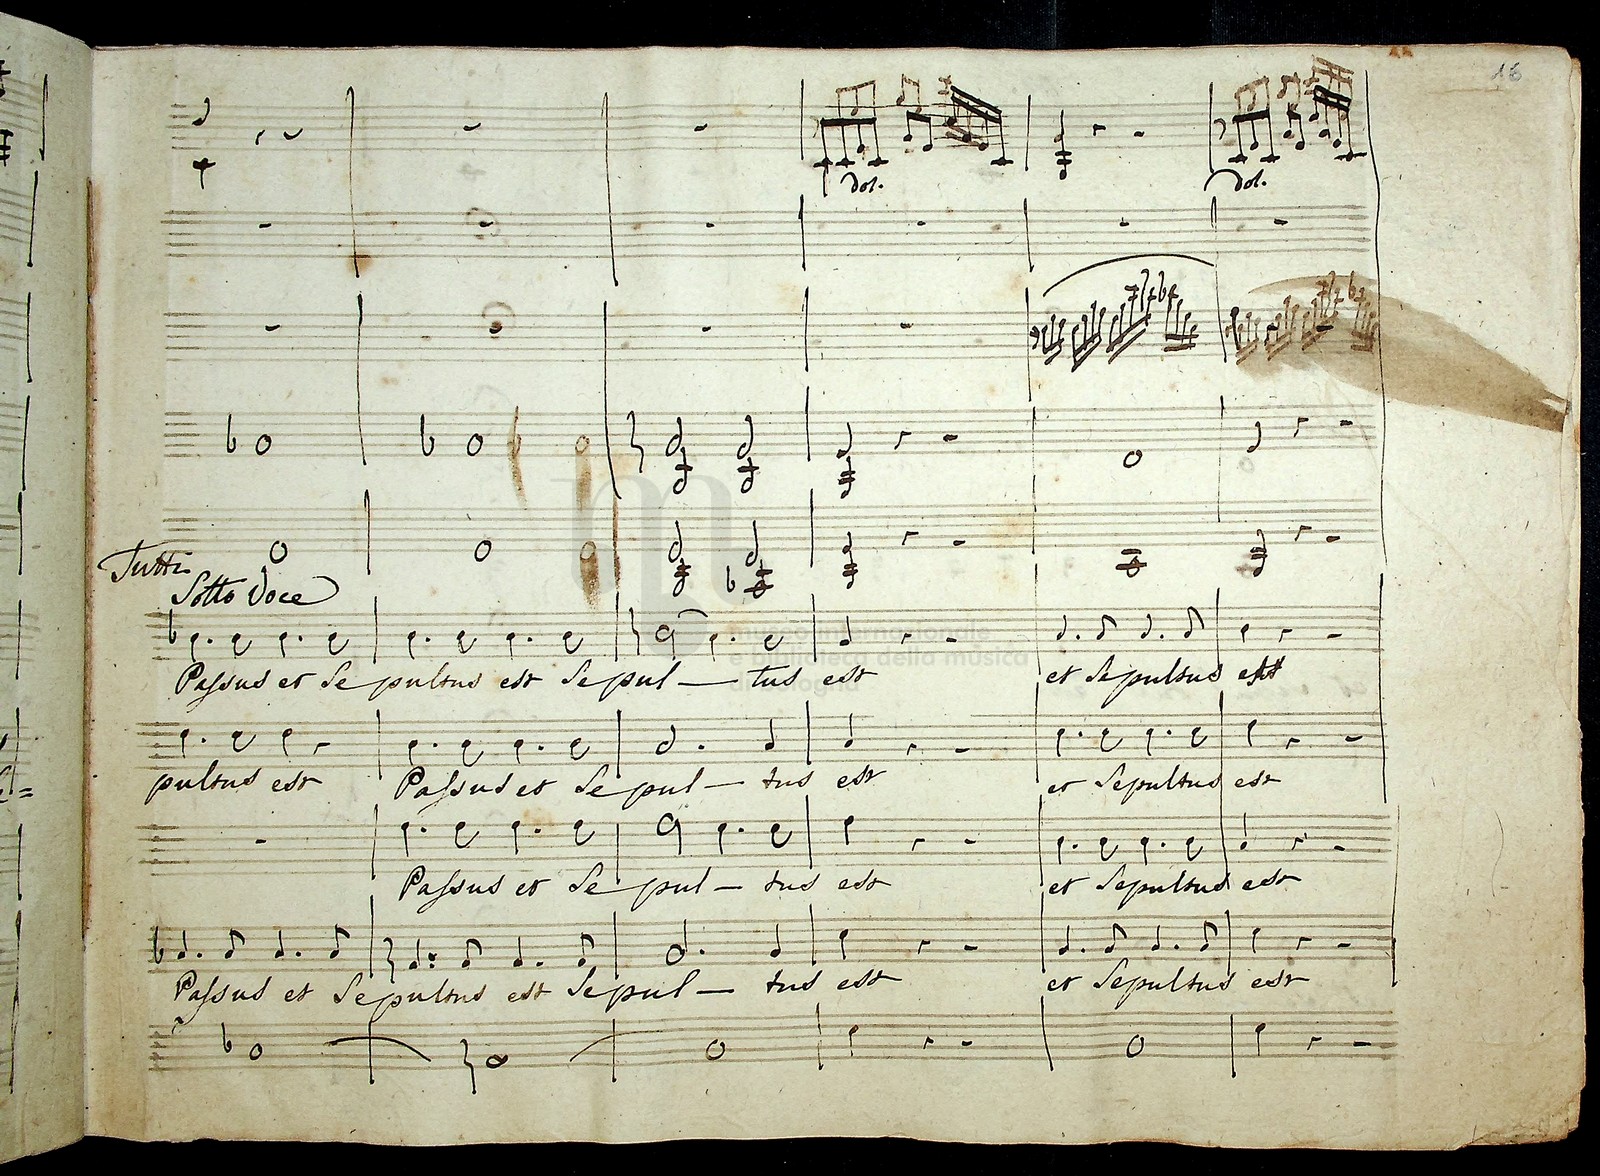 16
dol. dol.
Tutti
Sotto Voce
Passus et Sepultus est Sepul - tus est et Sepultus est
pultus est Passus et Sepul - tus est et Sepultus est
Passus et Sepul - tus est et Sepultus est
Passus et Sepultus est Sepul - tus est et Sepultus est
museo internazionale
e biblioteca della musica
di bologna